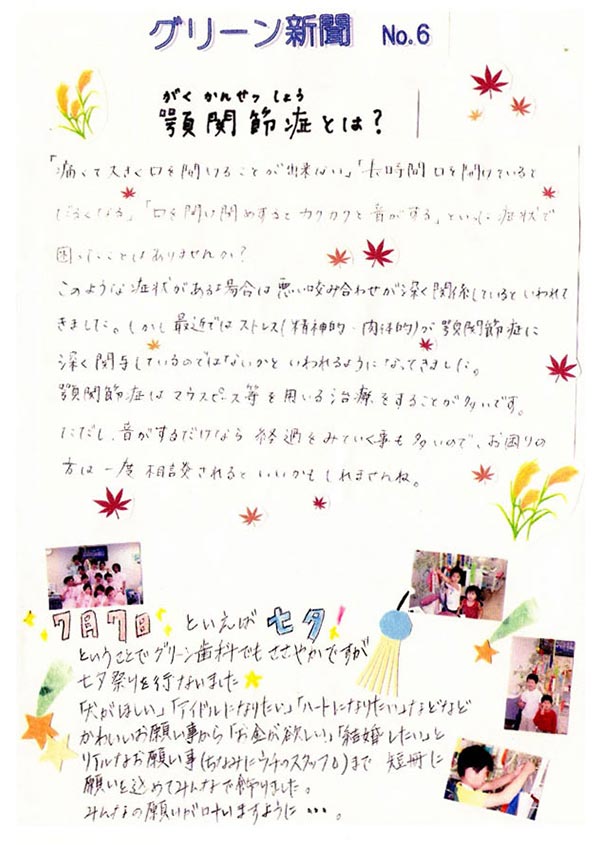 グリーン新聞 No.6
がく かんせつ しょう
顎関節症とは?
「痛くて大きく口を開けることが出来ない」「長時間口を開けていると
だるくなる」「口を開け閉めするとカクカクと音がする」といった症状で
困ったことはありませんか?
このような症状がある場合は悪い咬み合わせが深く関係しているといわれて
きました。しかし最近ではストレス(精神的・肉体的)が顎関節症に
深く関与しているのではないかといわれるようになってきました。
顎関節症はマウスピース等を用いる治療をすることが多いです。
ただし、音がするだけなら経過をみていく事も多いので、お困りの
方は一度相談されるといいかもしれませんね。
7月7日 といえば 七夕!
ということでグリーン歯科でもささやかですが
七夕祭りを行ないました
「犬がほしい」「アイドルになりたい」「ハートになりたい」などなど
かわいいお願い事から「お金が欲しい」「結婚したい」と
リアルなお願い事(ちなみにウチのスタッフ)まで 短冊に
願いを込めてみんなで飾りました。
みんなの願いが叶いますように・・・。